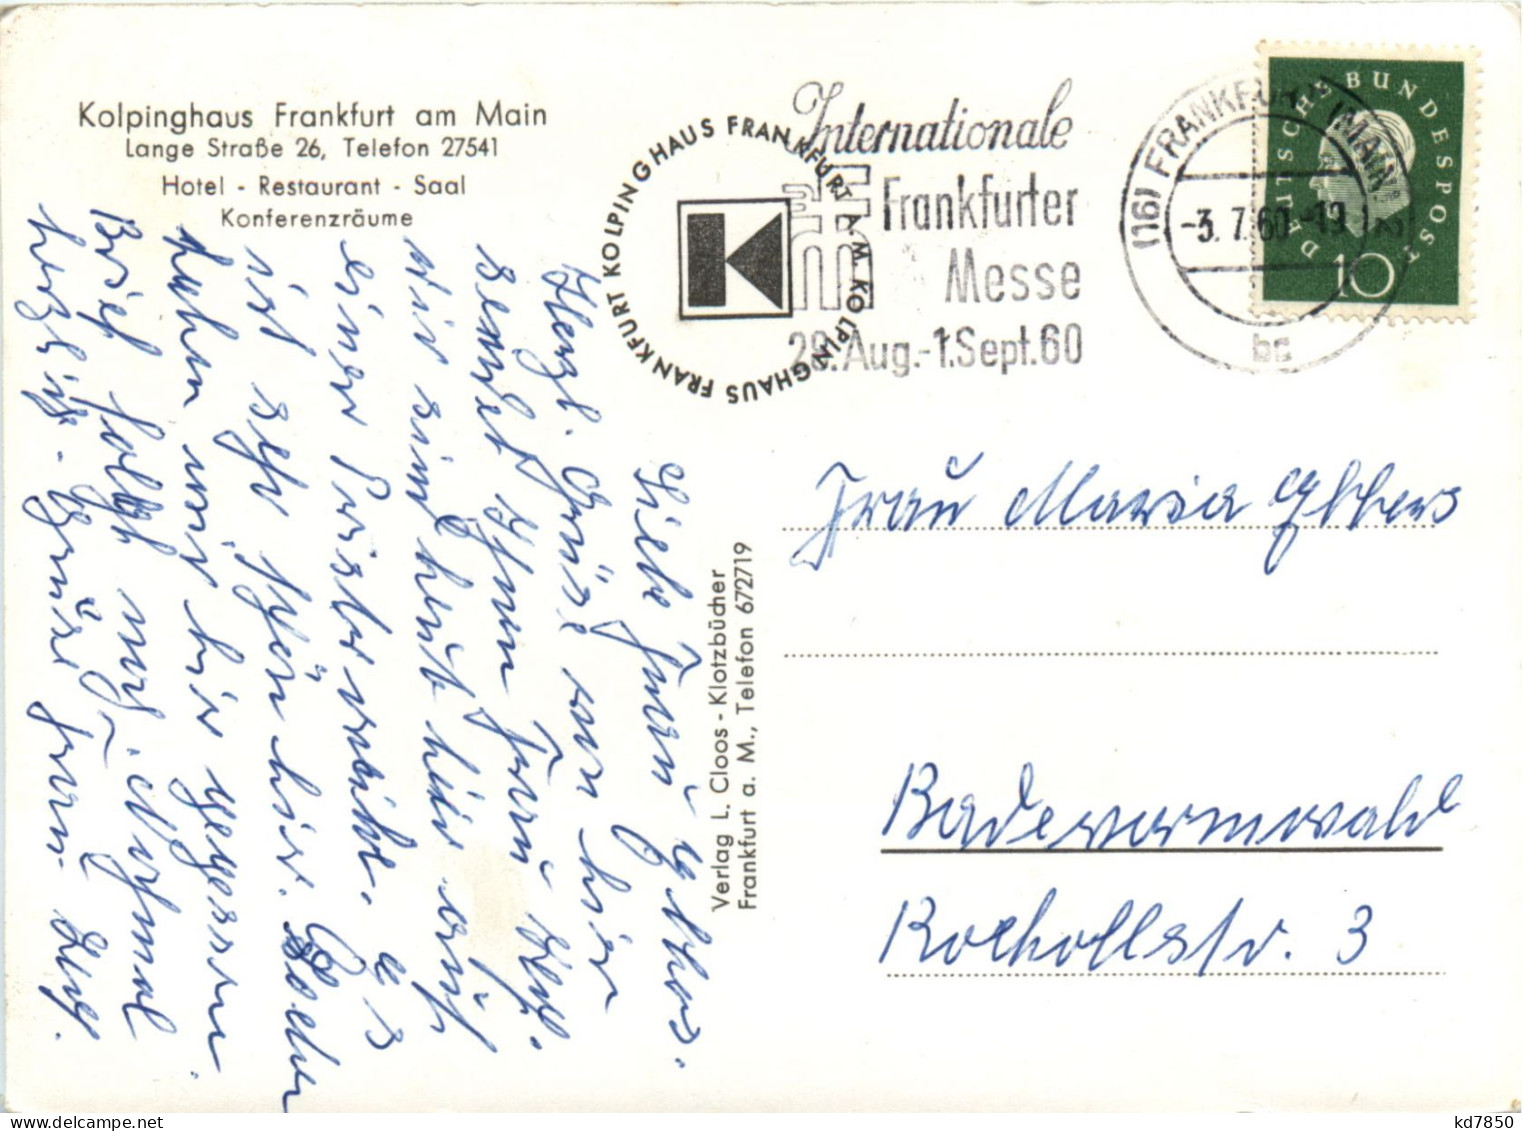 Kolpinghaus Frankfurt am Main
Lange Straße 26, Telefon 27541
Hotel - Restaurant - Saal
Konferenzräume
KOLPINGHAUS FRANKFURT A. M. KOLPINGHAUS FRANKFURT
K
Internationale
Frankfurter
Messe
28. Aug.-1.Sept.60
(16) FRANKFURT (MAIN)
-3. 7. 60.-19
bc
DEUTSCHE BUNDESPOST
10
Liebe Frau
Herzl. Grüße von hier
sendet Ihnen Frau
wir sind heut hier auf
einer Priesterweihe. es
ist sehr schön hier.
haben wir hier gegessen.
Brief folgt noch. Nochmal
herzlich. Grüße Frau
Verlag L. Cloos - Klotzbücher
Frankfurt a. M., Telefon 672719
Frau Maria
Radevormwald
Rochollstr. 3
kd7850